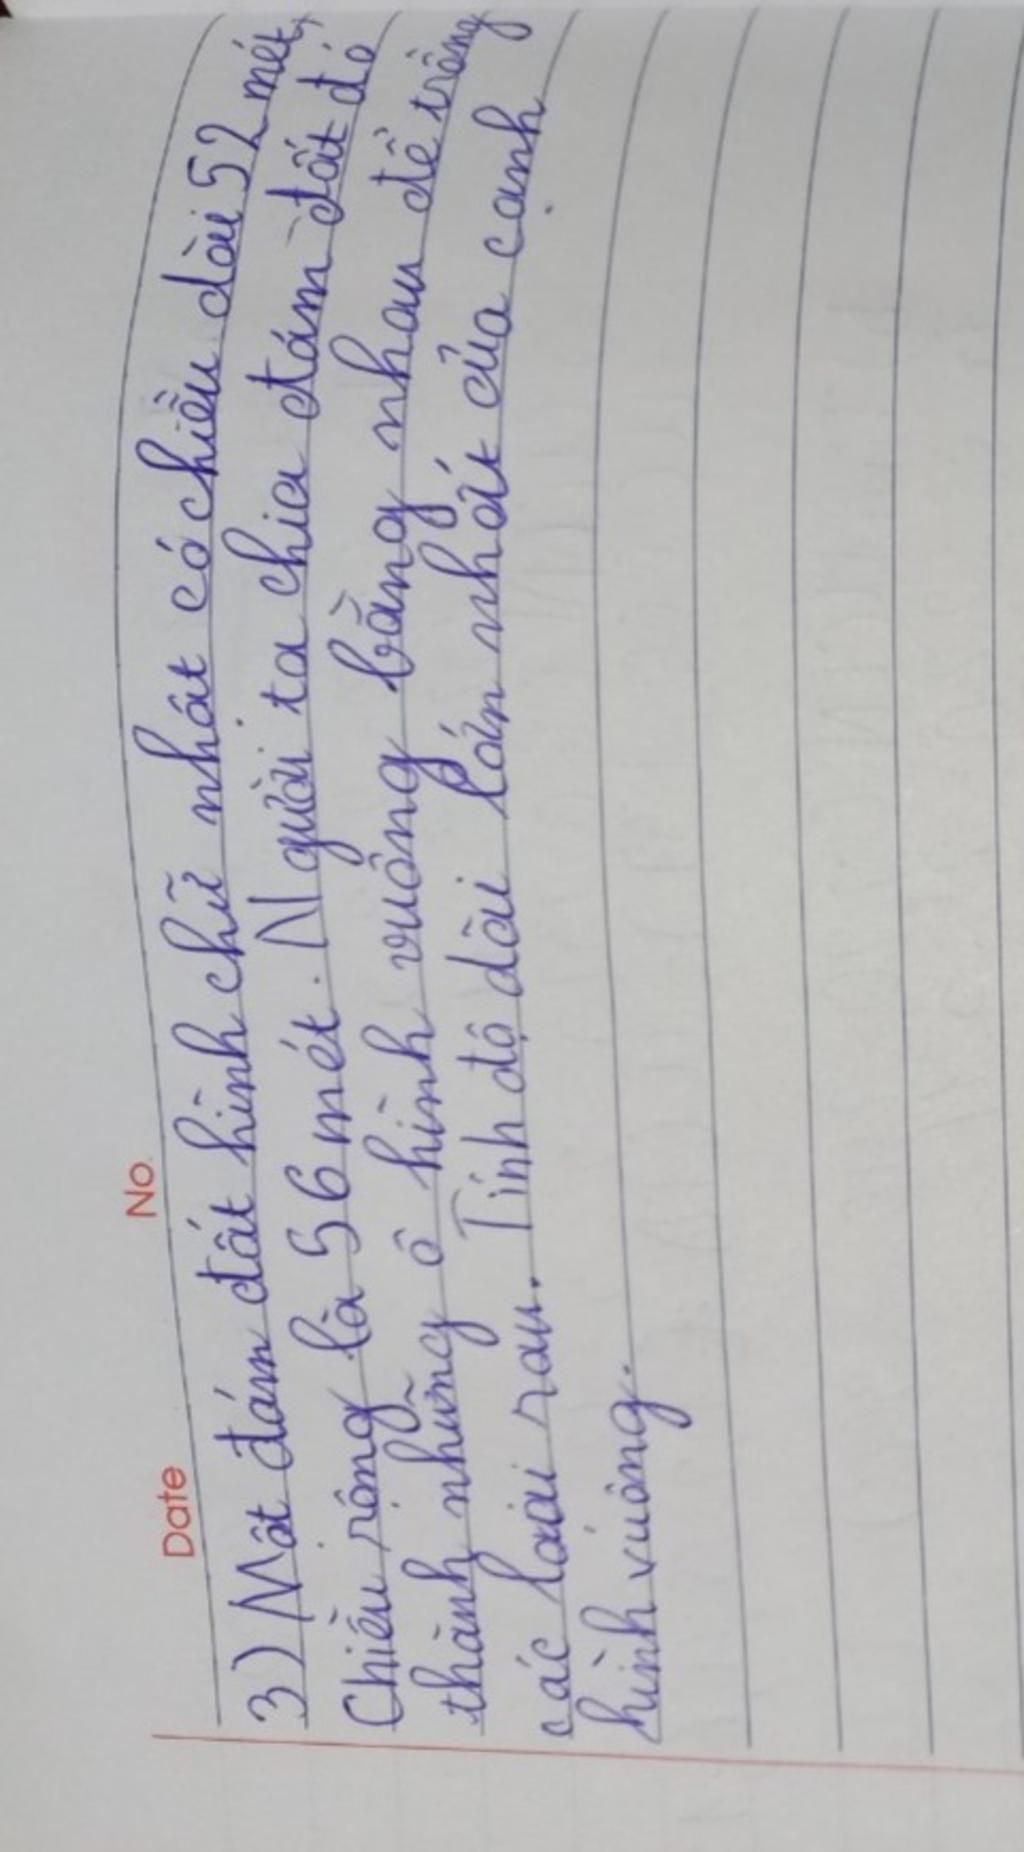 Date No.
3) Một đám đất hình chữ nhật có chiều dài 52 mét,
Chiều rộng là 56 mét. Người ta chia đám đất đó
thành những ô hình vuông bằng nhau để trồng
các loài rau. Tính độ dài lớn nhất của cạnh
hình vuông.